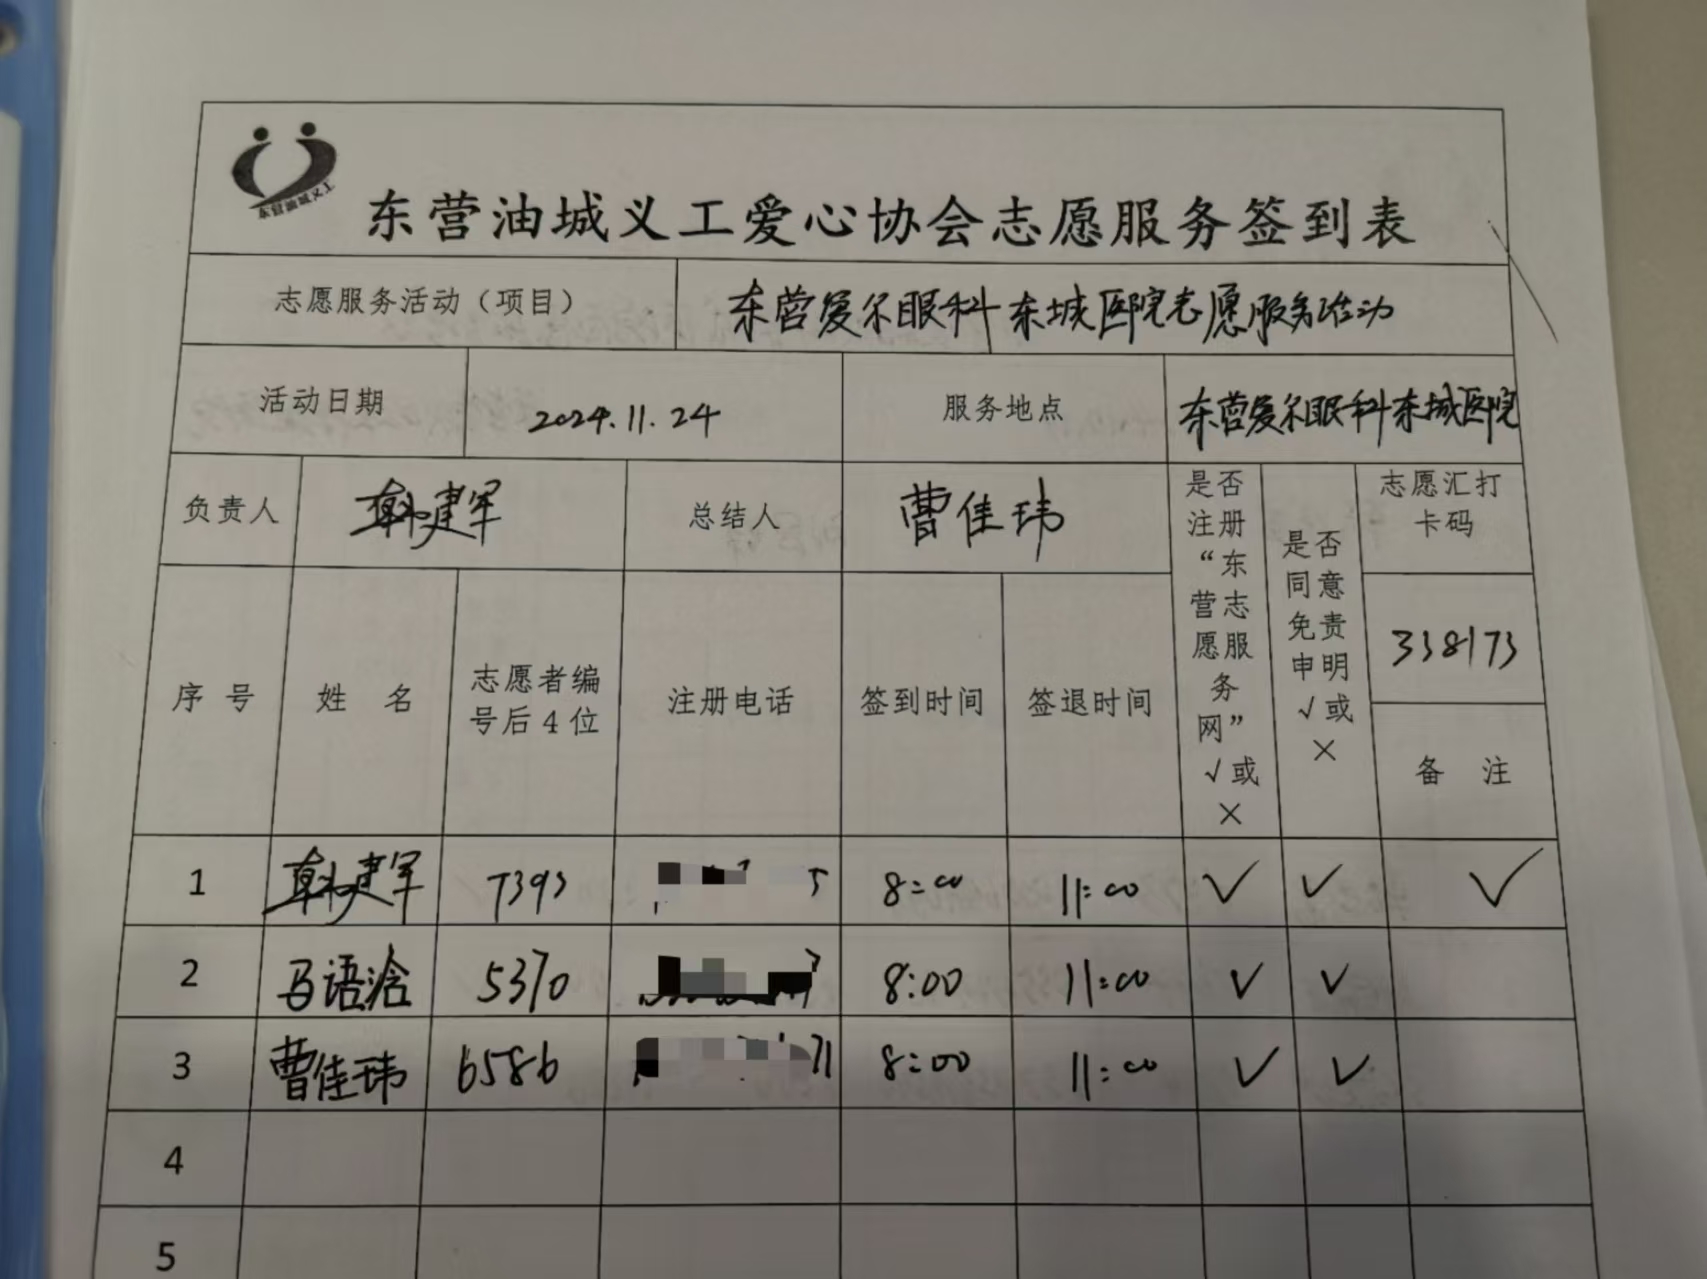 东营油城义工
东营油城义工爱心协会志愿服务签到表
志愿服务活动（项目） 东营爱尔眼科东城医院志愿服务活动
活动日期 2024.11.24 服务地点 东营爱尔眼科东城医院
负责人 韩建军 总结人 曹佳玮
是否注册“东营志愿服务网”√或×
是否同意免责申明√或×
志愿汇打卡码
338173
序号 姓名 志愿者编号后4位 注册电话 签到时间 签退时间 备注
1 韩建军 7393 8:00 11:00 √ √ √
2 马语浛 5370 8:00 11:00 √ √
3 曹佳玮 6586 8:00 11:00 √ √
4
5